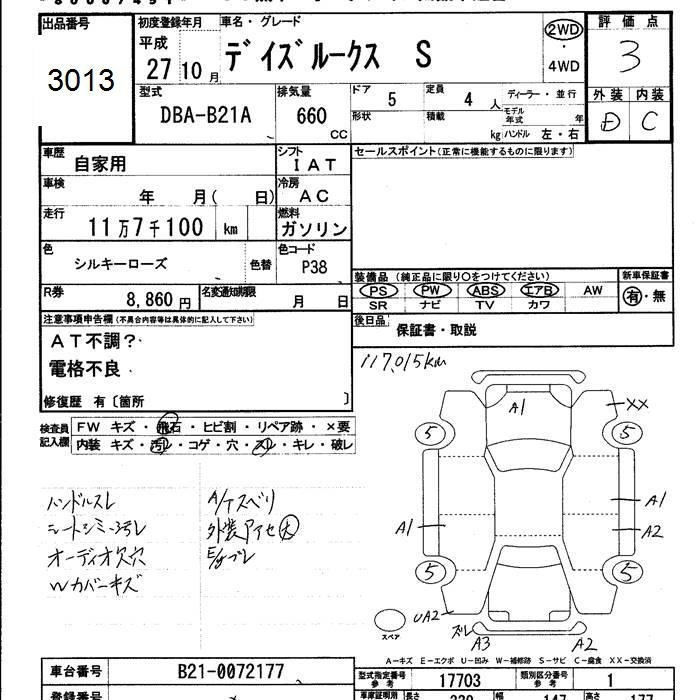 出品番号 初度登録年月 車名・グレード 評価点
3013 平成 27 10月 デイズルークス S 2WD ・ 4WD 3
型式 DBA-B21A 排気量 660 CC ドア 5 定員 4 人 ディーラー・並行
形状 積載 kg モデル年式 年 ハンドル 左・右
外装 内装
D C
車歴 自家用 シフト IAT セールスポイント(正常に機能するものに限ります)
車検 年 月( 日) 冷房 AC
走行 11万7千100 km 燃料 ガソリン
色 シルキーローズ 色替 色コード P38
装備品 (純正品に限り○をつけてください) 新車保証書
PS PW ABS エアB AW 有・無
SR ナビ TV カワ
R券 8,860円 名変通知期限 月 日
後日品 保証書・取説
注意事項申告欄(不具合内容等は具体的に記入して下さい)
AT不調?
電格不良
修復歴 有〔箇所 〕
117,015km
検査員記入欄 FW キズ・飛石・ヒビ割・リペア跡・×要
内装 キズ・汚レ・コゲ・穴・スレ・キレ・破レ
ハンドルスレ
シートシミ・汚レ
オーディオ欠穴
Wカバーキズ
A/Tスベリ
外装アセ大
E/gブレ
A1
XX
5 5
A1
A1
A2
5 5
UA2
スペア
ズレ
A3 A2
A-キズ E-エクボ U-凹み W-補修跡 S-サビ C-腐食 XX-交換済
車台番号 B21-0072177
型式指定番号 参考 17703 類別区分番号 参考 1
登録番号
車庫証明用 長さ 339 幅 147 高さ 177